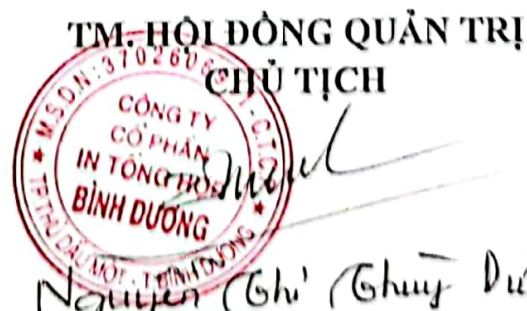 TM. HỘI ĐỒNG QUẢN TRỊ
CHỦ TỊCH
M.S.D.N: 3702606
C.T.C.P
CÔNG TY
CỔ PHẦN
IN TỔNG HỢP
BÌNH DƯƠNG
TP.THỦ DẦU MỘT - T.BÌNH DƯƠNG
Nguyễn Thị Thùy